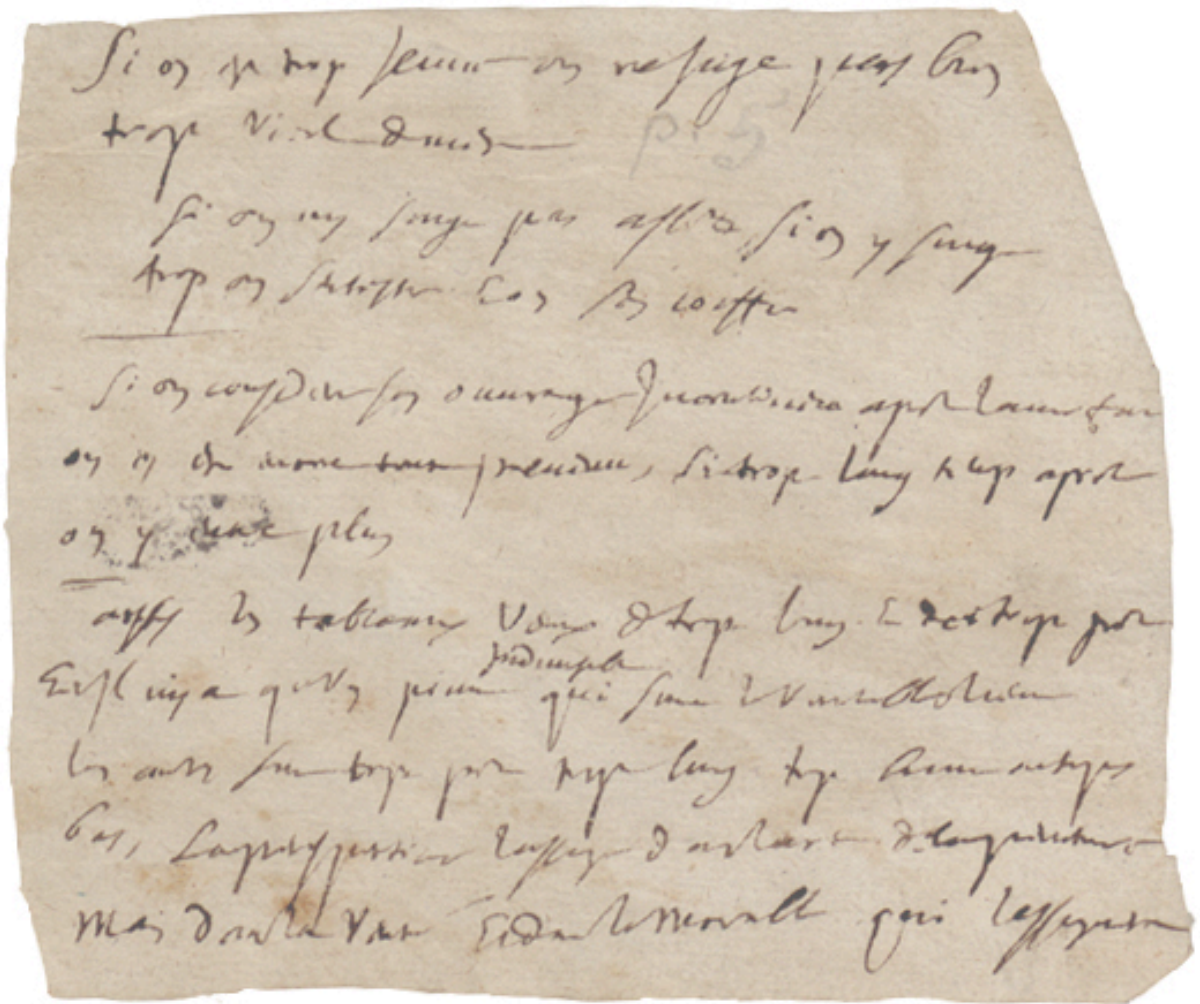 Si on est trop jeune on ne juge pas bien
trop vieil de mesme
p. 5
Si on n'y songe pas assez, si on y songe
trop on s'enteste & on s'en coiffe
Si on considere son ouvrage incontinent apres l'avoir fait
on en est encore tout prevenu, si trop longtemps apres
on n'y entre plus
aussy les tableaux veus de trop loing & de trop pres
indivisible
Et il n'y a qu'un point qui soit le veritable lieu
les autres sont trop pres trop loing trop hault ou trop
bas, La perspective l'assigne dans l'art de la peinture
Mais dans la verité & dans la morale qui l'assignera